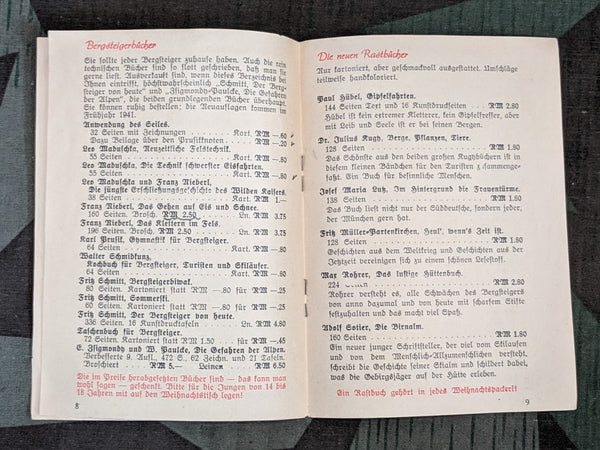 Bergsteigerbücher
Sie sollte jeder Bergsteiger zuhause haben. Auch die rein
technischen Bücher sind so flott geschrieben, daß man sie
gerne liest. Ausverkauft sind, wenn dieses Verzeichnis bei
Ihnen eintrifft, höchstwahrscheinlich „Schmitt, Der Berg-
steiger von heute" und „Zsigmondy-Paulcke, Die Gefahren
der Alpen", die beiden grundlegenden Bücher überhaupt.
Sie können ruhig bestellen; die Neuauflagen kommen im
Frühjahr 1941.
Anwendung des Seiles.
32 Seiten mit Zeichnungen . . . . . Kart. RM —.60
Dazu Beilage über den Prusikknoten . . . . RM —.20
Leo Maduschka, Neuzeitliche Felstechnik.
55 Seiten . . . . . Kart. RM —.80
Leo Maduschka, Die Technik schwerster Eisfahrten.
55 Seiten . . . . . Kart. RM —.80
Leo Maduschka und Franz Nieberl,
Die jüngste Erschließungsgeschichte des Wilden Kaisers.
38 Seiten . . . . . Kart. RM 1.—
Franz Nieberl, Das Gehen auf Eis und Schnee.
160 Seiten. Brosch. RM 2.50 . . . . . Ln. RM 3.75
Franz Nieberl, Das Klettern im Fels.
196 Seiten. Brosch. RM 2.50 . . . . . Ln. RM 3.75
Karl Prusik, Gymnastik für Bergsteiger.
64 Seiten . . . . . Kart. RM —.80
Walter Schmidkunz,
Kochbuch für Bergsteiger, Touristen und Skiläufer.
64 Seiten . . . . . Kart. RM —.80
Fritz Schmitt, Bergsteigerbiwak.
80 Seiten. Kartoniert statt RM —.80 für RM —.25
Fritz Schmitt, Sommerski.
60 Seiten. Kartoniert statt RM —.80 für RM —.25
Fritz Schmitt, Der Bergsteiger von heute.
336 Seiten. 16 Kunstdrucktafeln . . . Ln. RM 4.80
Taschenbuch für Bergsteiger.
72 Seiten. Kartoniert statt RM 1.50 . . für RM —.45
E. Zsigmondy und W. Paulcke, Die Gefahren der Alpen.
Verbesserte 9. Aufl., 472 S., 62 Zeichn. und 21 Tafeln.
Broschiert . . . . RM 5.— Leinen . . . RM 6.50
Die im Preise herabgesetzten Bücher sind — das kann man
wohl sagen — geschenkt. Bitte für die Jungen von 14 bis
18 Jahren mit auf den Weihnachtstisch legen!
8
Die neuen Rastbücher
Nur kartoniert, aber geschmackvoll ausgestattet. Umschläge
teilweise handkoloriert.
Paul Hübel, Gipfelfahrten.
144 Seiten Text und 16 Kunstdruckseiten . . . RM 2.80
Hübel ist kein extremer Kletterer, kein Gipfelfresser, aber
mit Leib und Seele ist er bei seinen Bergen.
Dr. Julius Kugy, Berge, Pflanzen, Tiere.
128 Seiten . . . . . RM 1.80
Das Schönste aus den beiden großen Kugybüchern ist in
diesem kleinen Bändchen für den Turisten zusammenge-
faßt. Ein Buch für besinnliche Menschen.
Josef Maria Lutz, Im Hintergrund die Frauentürme.
138 Seiten . . . . . RM 1.80
Das Buch ließt nicht nur der Süddeutsche, sondern jeder,
der München gern hat.
Fritz Müller-Partenkirchen, Heul', wenn's Zeit ist.
128 Seiten . . . . . RM 1.80
Geschichten aus dem Weltkrieg und Geschichten aus der
Jetztzeit vereinigen sich zu einem schönen Lesestoff.
Max Rohrer, Das lustige Hüttenbuch.
224 Seiten . . . . . RM 2.80
Rohrer versteht es, alle Schwächen des Bergsteigers
von anno dazumal und von heute mit scharfem Stifte
festzuhalten und das macht viel Spaß.
Adolf Sotier, Die Birnalm.
160 Seiten . . . . . RM 1.80
Ein neuer junger Schriftsteller, der viel vom Skilaufen
und von dem Menschlich-Allzumenschlichen versteht,
schreibt die Geschichte seiner Skialm und schildert dabei,
was die Gebirgsjäger auf der Hütte erleben.
Ein Rastbuch gehört in jedes Weihnachtspackerl!
9